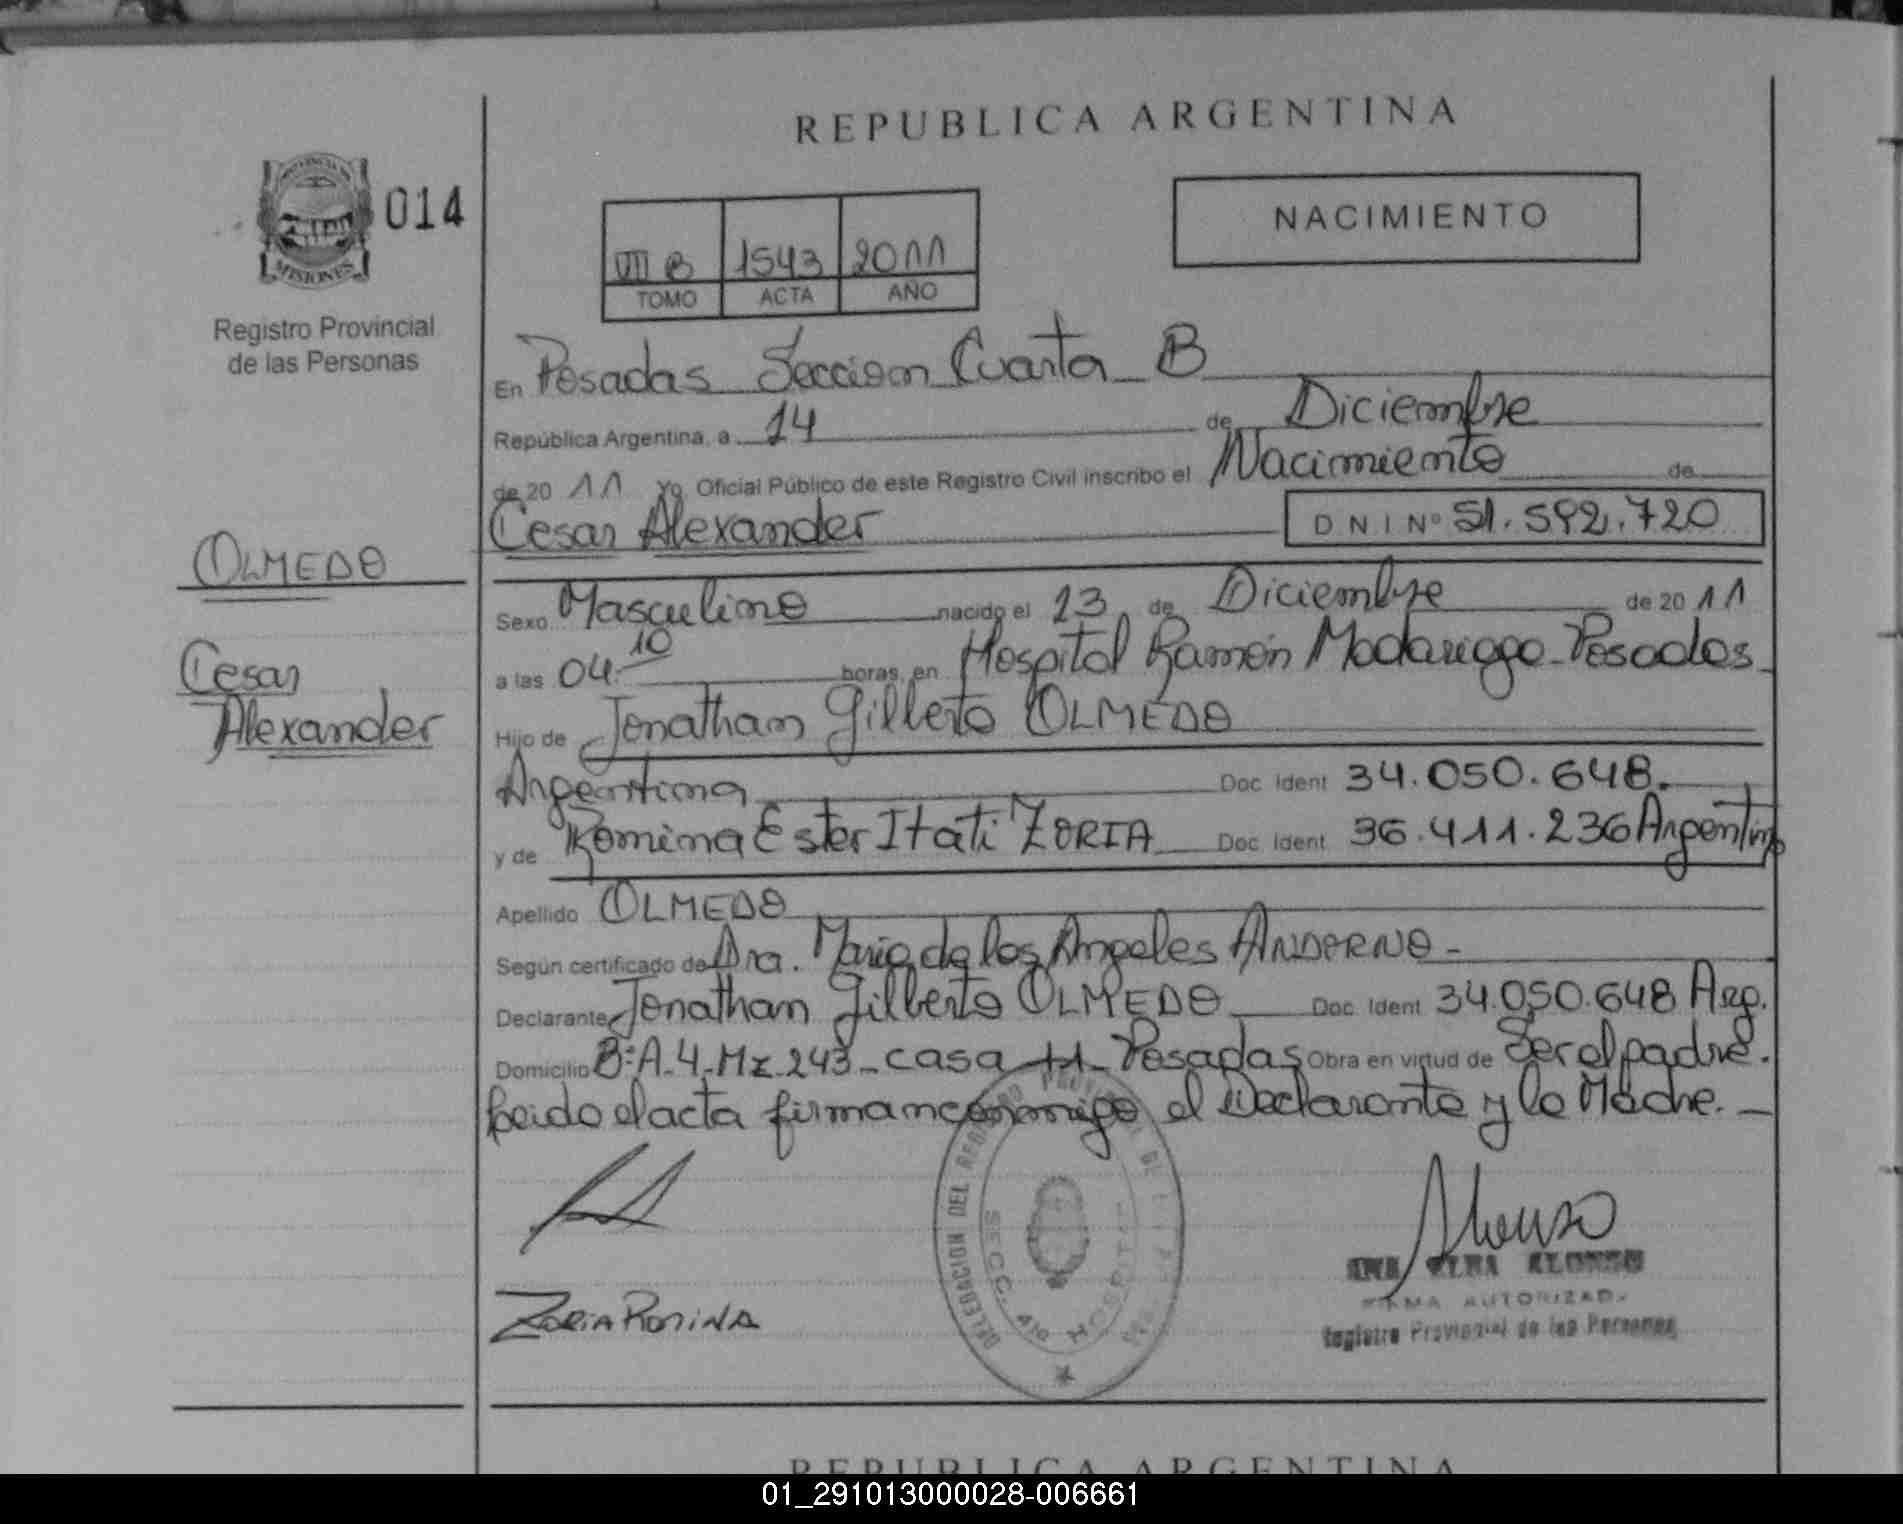 REPUBLICA ARGENTINA
014
MISIONES
Registro Provincial
de las Personas
NACIMIENTO
VII B 1543 2011
TOMO ACTA AÑO
En Posadas Seccion Cuarta B
República Argentina, a 14 de Diciembre
de 20 11 Yo, Oficial Público de este Registro Civil inscribo el Nacimiento de
Cesar Alexander DNI Nº 51.592.720
OLMEDO
Cesar
Alexander
Sexo Masculino nacido el 13 de Diciembre de 20 11
a las 04:10 horas, en Hospital Ramón Madariaga - Posadas
Hijo de Jonathan Gilberto OLMEDO
Argentina Doc Ident 34.050.648.
y de Romina Ester Itati ZORIA Doc Ident 36.411.236 Argentina
Apellido OLMEDO
Según certificado de Dra. Maria de los Angeles ANDERNO -
Declarante Jonathan Gilberto OLMEDO Doc Ident 34.050.648 Arg.
Domicilio Bº A.4. Mz 243 - casa 11 - Posadas Obra en virtud de Ser el padre.
Leido el acta firman conmigo el Declarante y la Madre. -
DELEGACION DEL REGISTRO PROVINCIAL DE
SECC. 4ta HOSPITAL
Alonso
ANA ELBA ALONSO
FIRMA AUTORIZADA
Registro Provincial de las Personas
ZORIA ROMINA
REPUBLICA ARGENTINA
01_291013000028-006661